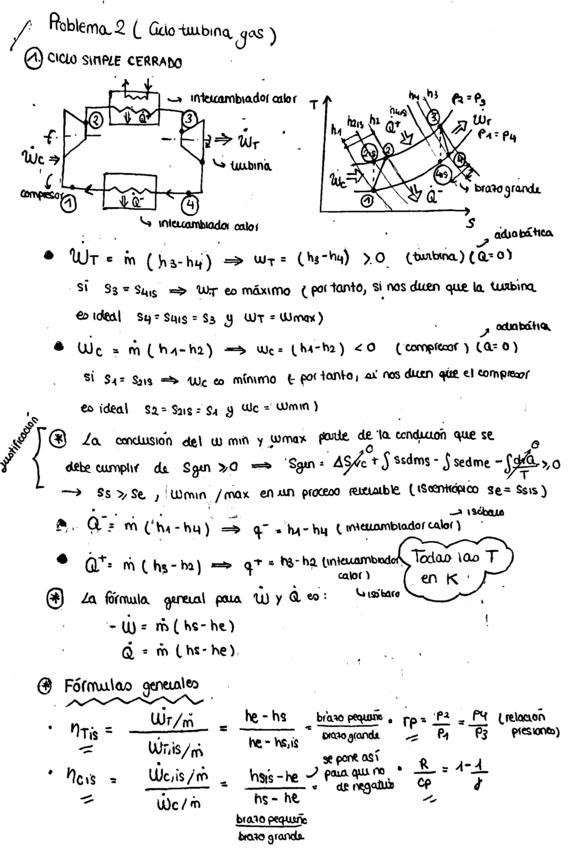 Problema 2 ( Ciclo turbina gas)
1. CICLO SIMPLE CERRADO
intercambiador calor
Q̇⁺
2
3
Ẇc ⇒
⇒ ẆT
turbina
compresor
1
4
Q̇⁻
intercambiador calor
T
h1 h2is h2
h4is h4 h3
P2 = P3
P1 = P4
3
ẆT
Q̇⁺
2s
2
4s
4
Ẇc
1
Q̇⁻
brazo grande
S
• ẆT = ṁ (h3-h4) ⇒ wT = (h3-h4) ≥ 0 (turbina) (Q̇=0) → adiabática
si s3 = s4is ⇒ wT es máximo (por tanto, si nos dicen que la turbina
es ideal s4 = s4is = s3 y wT = wmax)
• Ẇc = ṁ (h1-h2) ⇒ wc = (h1-h2) < 0 (compresor) (Q̇=0) → adiabática
si s1 = s2is ⇒ wc es mínimo (por tanto, si nos dicen que el compresor
es ideal s2 = s2is = s1 y wc = wmin)
Justificación
* La conclusión del w min y wmax parte de la condición que se
debe cumplir de Sgen ≥ 0 ⟹ Sgen = ΔS/vc⁰ + ∫ssdms - ∫sedme - ∫dQ/T⁰ ≥ 0
→ ss ≥ se, wmin/max en un proceso reversible (isoentrópico se = ssis)
• Q̇⁻ = ṁ (h1-h4) ⇒ q⁻ = h1-h4 (intercambiador calor) → isóbaro
• Q̇⁺ = ṁ (h3-h2) ⇒ q⁺ = h3-h2 (intercambiador calor) ↳ isóbaro
Todas las T
en K
* La fórmula general para Ẇ y Q̇ es:
- Ẇ = ṁ (hs-he)
Q̇ = ṁ (hs-he)
* Fórmulas generales
• ηTis = (ẆT/ṁ)/(ẆT,is/ṁ) = (he-hs)/(he-hs,is) = brazo pequeño/brazo grande • rp = P2/P1 = P4/P3 (relación presiones)
• ηcis = (Ẇc,is/ṁ)/(Ẇc/ṁ) = (hsis-he)/(hs-he) = se pone así para que no de negativo • R/cp = 1-1/γ
brazo pequeño/brazo grande